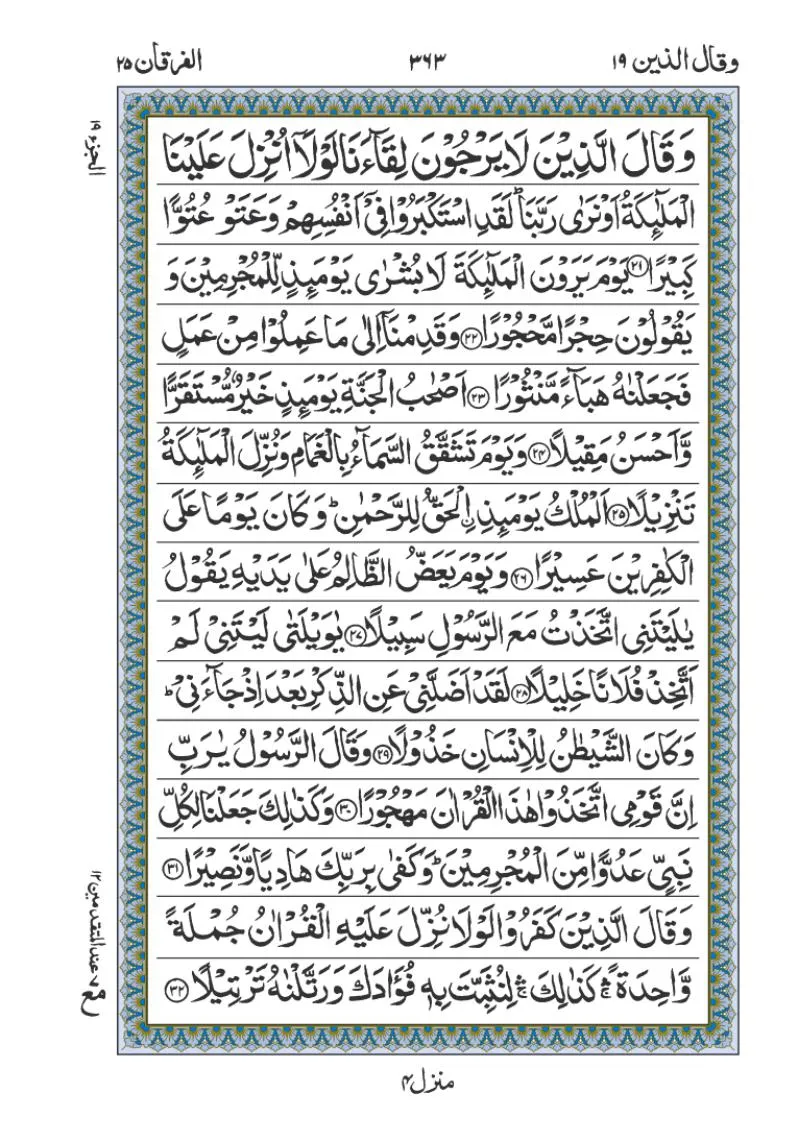 وقال الذین ۱۹
۳۶۳
الفرقان ۲۵
الجزء ۱۹
وَقَالَ الَّذِیۡنَ لَا یَرۡجُوۡنَ لِقَآءَنَا لَوۡلَاۤ اُنۡزِلَ عَلَیۡنَا
الۡمَلٰٓئِکَۃُ اَوۡ نَرٰی رَبَّنَا ؕ لَقَدِ اسۡتَکۡبَرُوۡا فِیۡۤ اَنۡفُسِہِمۡ وَ عَتَوۡ عُتُوًّا
کَبِیۡرًا ﴿۲۱﴾ یَوۡمَ یَرَوۡنَ الۡمَلٰٓئِکَۃَ لَا بُشۡرٰی یَوۡمَئِذٍ لِّلۡمُجۡرِمِیۡنَ وَ
یَقُوۡلُوۡنَ حِجۡرًا مَّحۡجُوۡرًا ﴿۲۲﴾ وَ قَدِمۡنَاۤ اِلٰی مَا عَمِلُوۡا مِنۡ عَمَلٍ
فَجَعَلۡنٰہُ ہَبَآءً مَّنۡثُوۡرًا ﴿۲۳﴾ اَصۡحٰبُ الۡجَنَّۃِ یَوۡمَئِذٍ خَیۡرٌ مُّسۡتَقَرًّا
وَّ اَحۡسَنُ مَقِیۡلًا ﴿۲۴﴾ وَ یَوۡمَ تَشَقَّقُ السَّمَآءُ بِالۡغَمَامِ وَ نُزِّلَ الۡمَلٰٓئِکَۃُ
تَنۡزِیۡلًا ﴿۲۵﴾ اَلۡمُلۡکُ یَوۡمَئِذِۣ الۡحَقُّ لِلرَّحۡمٰنِ ؕ وَ کَانَ یَوۡمًا عَلَی
الۡکٰفِرِیۡنَ عَسِیۡرًا ﴿۲۶﴾ وَ یَوۡمَ یَعَضُّ الظَّالِمُ عَلٰی یَدَیۡہِ یَقُوۡلُ
یٰلَیۡتَنِی اتَّخَذۡتُ مَعَ الرَّسُوۡلِ سَبِیۡلًا ﴿۲۷﴾ یٰوَیۡلَتٰی لَیۡتَنِیۡ لَمۡ
اَتَّخِذۡ فُلَانًا خَلِیۡلًا ﴿۲۸﴾ لَقَدۡ اَضَلَّنِیۡ عَنِ الذِّکۡرِ بَعۡدَ اِذۡ جَآءَنِیۡ ؕ
وَ کَانَ الشَّیۡطٰنُ لِلۡاِنۡسَانِ خَذُوۡلًا ﴿۲۹﴾ وَ قَالَ الرَّسُوۡلُ یٰرَبِّ
اِنَّ قَوۡمِی اتَّخَذُوۡا ہٰذَا الۡقُرۡاٰنَ مَہۡجُوۡرًا ﴿۳۰﴾ وَ کَذٰلِکَ جَعَلۡنَا لِکُلِّ
نَبِیٍّ عَدُوًّا مِّنَ الۡمُجۡرِمِیۡنَ ؕ وَ کَفٰی بِرَبِّکَ ہَادِیًا وَّ نَصِیۡرًا ﴿۳۱﴾
وَ قَالَ الَّذِیۡنَ کَفَرُوۡا لَوۡلَا نُزِّلَ عَلَیۡہِ الۡقُرۡاٰنُ جُمۡلَۃً
وَّاحِدَۃً ۚۛ کَذٰلِکَ ۚۛ لِنُثَبِّتَ بِہٖ فُؤَادَکَ وَ رَتَّلۡنٰہُ تَرۡتِیۡلًا ﴿۳۲﴾
مع ۷ عند المتقدمین ۱۲
منزل ۴